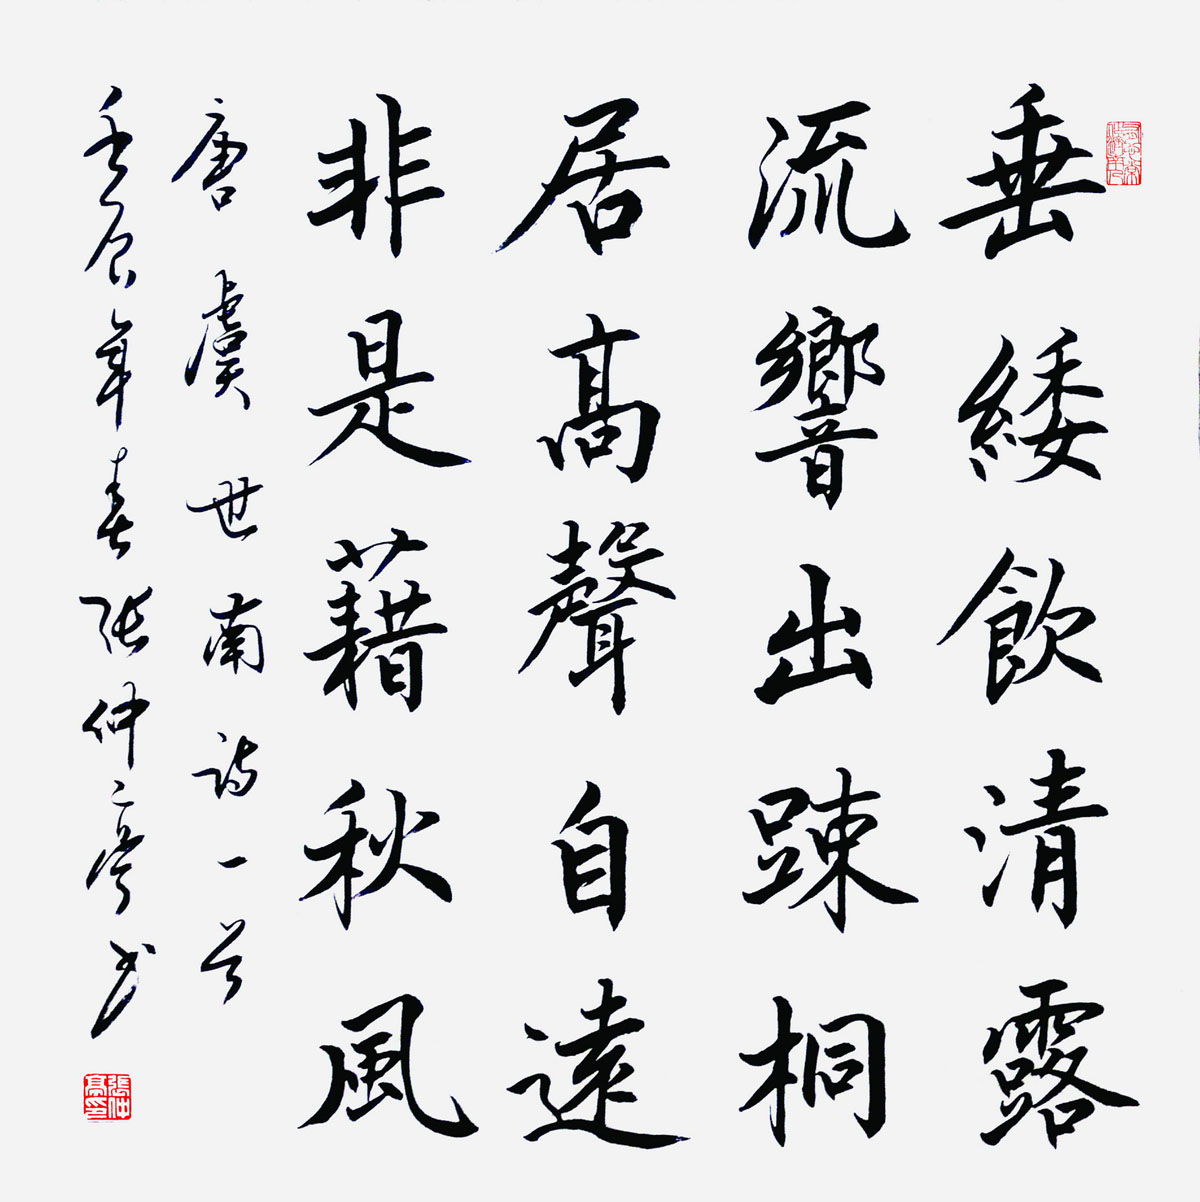 垂緌飲清露
流響出踈桐
居髙聲自遠
非是藉秋風
唐虞世南詩一首
壬辰年春張仲亭書
張仲亭印